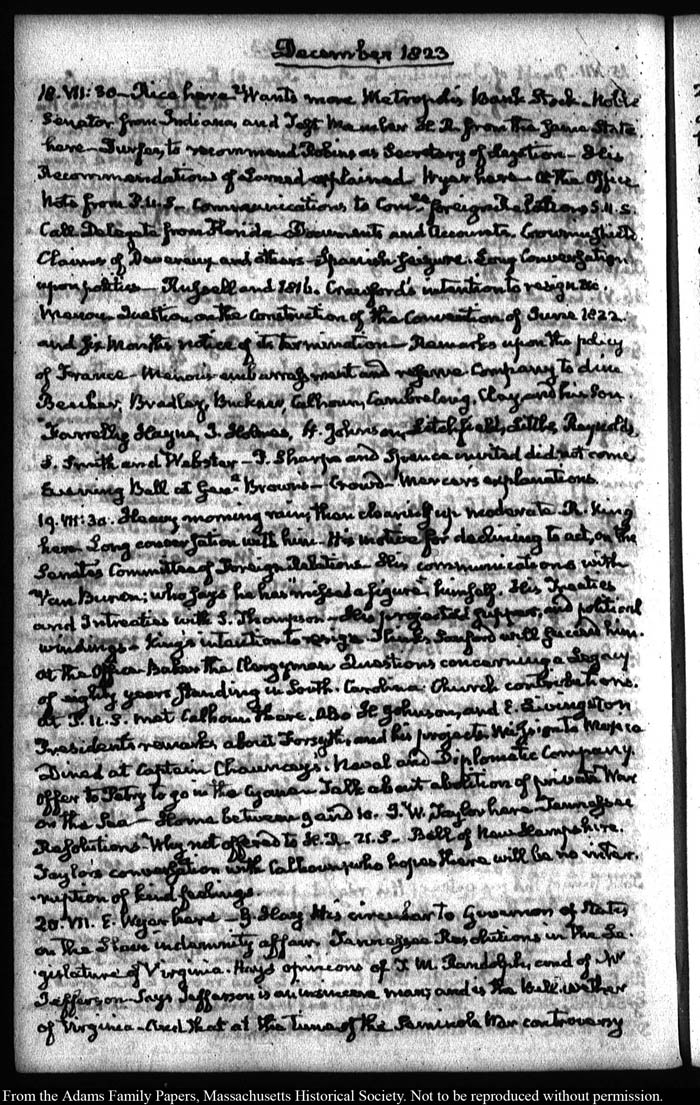 December 1823
18. VII: 30 — Rice here. Wants more Metropolis Bank Stock. Noble
Senator from Indiana, and Test Member H. R. from the same State
here — Durfee, to recommend Robins as Secretary of Legation — His
Recommendations of Larned explained. Wyer here. At the Office
Note from P. U. S. — Communications to Com.ee foreign Relations S. U. S.
Call Delegate from Florida — Documents and Accounts.
Claims of Devereux and others — Spanish seizure. Long Conversation
upon politics — Russell and 1816. Crawford's intention to resign &c.
Menou. Question on the Construction of the Convention of June 1822
and Six Months notice of its termination — Remarks upon the policy
of France — Menou's embarrassment and reserve. Company to dine
Beecher, Bradley, Buckner, Calhoun, Cambreleng, Clay and his Son.
Farrelly, Hayne, J. Holmes, H. Johnson, Litchfield, Little, Reynolds,
S. Smith and Webster — Sharpe and Spence invited did not come
Evening Ball at Gen.l Brown's — Crowd — Mercer's explanations.
19. VII: 30. Heavy morning rain, then cleared up moderate. R. King
here Long conversation with him. His motive for declining to act, on the
Senate's Committee of Foreign Relations. His communications with
Van Buren; who says he has "missed a figure" himself. His Treaties
and Intreaties with S. Thompson — His projected supper, and political
windings — King's intention to resign. Thinks Sanford will succeed him.
At the Office Baker the Clergyman Questions concerning a Legacy
of eighty years standing in South. Carolina Church contributions.
At P. U. S. met Calhoun there. Also H. Johnson, and E. Livingston
President's remarks about Forsyth, and his projects. Mission to Mexico
Dined at Captain Chauncey's. Naval and Diplomatic Company.
Offer to Petry to go in the Cyane. Talk about abolition of private War
on the Sea — Home between 9 and 10. J. W. Taylor here — Tennessee
Resolutions. Why not offered to H. R. U. S. Bell of New Hampshire.
Taylor's conversation with Calhoun, who hopes there will be no inter-
ruption of kind feelings.
20. VI. E. Wyer here — G. Hay His circular to Governors of States
on the Slave indemnity affair. Tennessee Resolutions in the Le-
gislature of Virginia. Hay's opinions of T. M. Randolph, and of Mr
Jefferson — Says Jefferson is an insincere man; and is the Bell wether
of Virginia — And that at the time of the Seminole War controversy
From the Adams Family Papers, Massachusetts Historical Society. Not to be reproduced without permission.